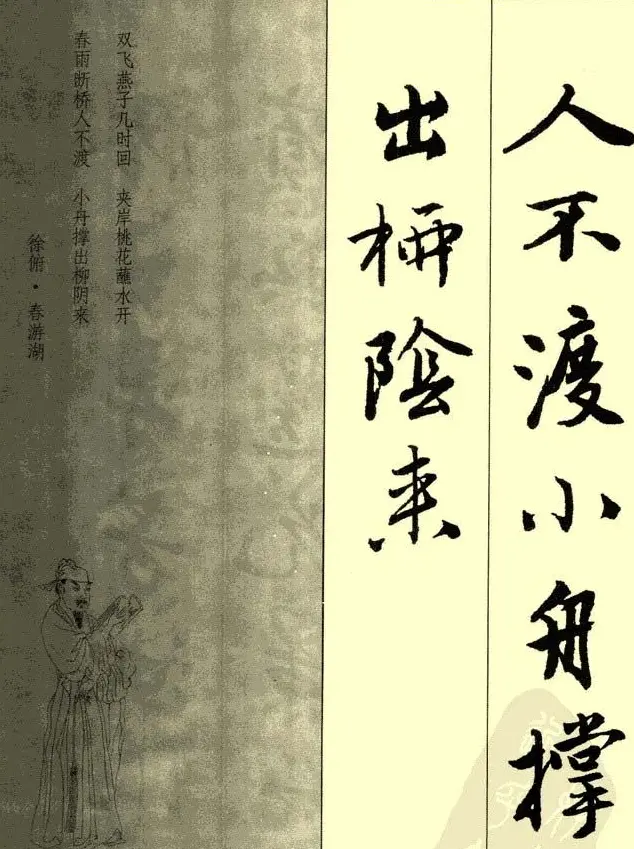 人不渡小舟撑
出柳陰来
双飞燕子几时回 夹岸桃花蘸水开
春雨断桥人不渡 小舟撑出柳阴来
徐俯·春游湖